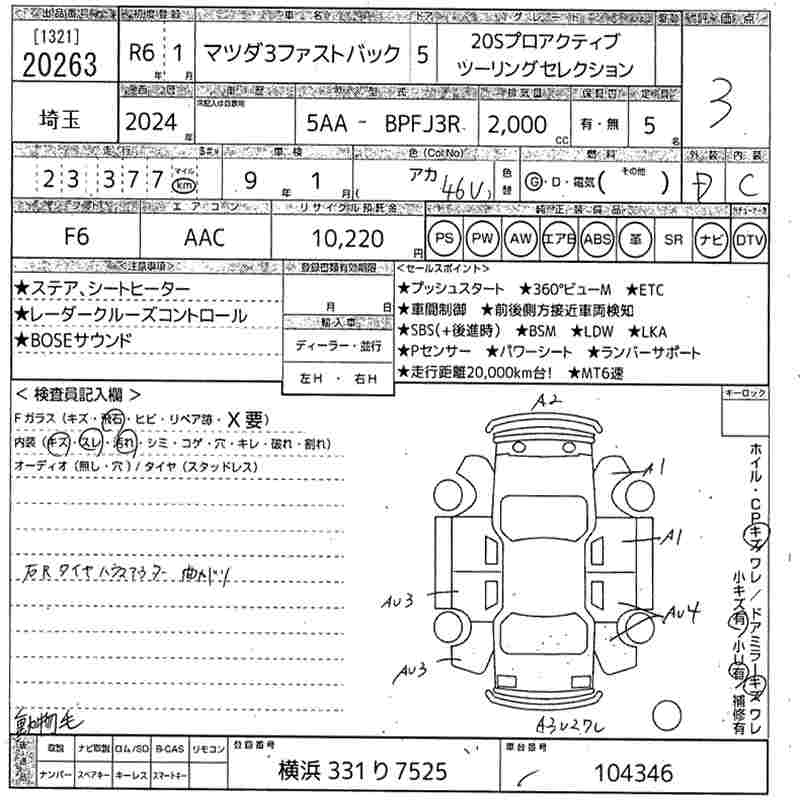 出品番号 初度登録 車名 ドア グレード 評価点
[1321]
20263
R6年 1月 マツダ3ファストバック 5 20Sプロアクティブ
ツーリングセレクション
3
車歴 型式 排気量 保証書 定員
埼玉 2024年 5AA - BPFJ3R 2,000cc 有・無 5名
走行 車検 色(ColNo) 燃料 外装 内装
23,377 マイル km 9年 1月 アカ(46V) 色替 G・D・電気(その他) D C
シフト エアコン リサイクル預託金 純正装備品
F6 AAC 10,220円 PS PW AW エアB ABS 革 SR ナビ DTV
<注意事項> 登録書類有効期限 <セールスポイント>
★ステア、シートヒーター
★レーダークルーズコントロール
★BOSEサウンド
月 日
輸入車
ディーラー・並行
左H ・ 右H
★プッシュスタート ★360°ビューM ★ETC
★車間制御 ★前後側方接近車両検知
★SBS(+後進時) ★BSM ★LDW ★LKA
★Pセンサー ★パワーシート ★ランバーサポート
★走行距離20,000km台! ★MT6速
< 検査員記入欄 >
Fガラス (キズ・飛石・ヒビ・リペア跡・X要)
内装 (キズ・スレ・汚れ・シミ・コゲ・穴・キレ・破れ・割れ)
オーディオ (無し・穴) / タイヤ (スタッドレス)
右Rタイヤハウスアウター 曲ガリ
動物毛
キーロック
A2
A1
A1
AU3
AU4
AU3
A3U2ワレ
ホイル・CPキズワレ/ドアミラーキズワレ
小キズ有/小U有/補修有
取説 ナビ取説 ロム/SD B-CAS リモコン 登録番号 車台番号
ナンバー スペアキー キーレス スマートキー
横浜 331 り 7525
104346